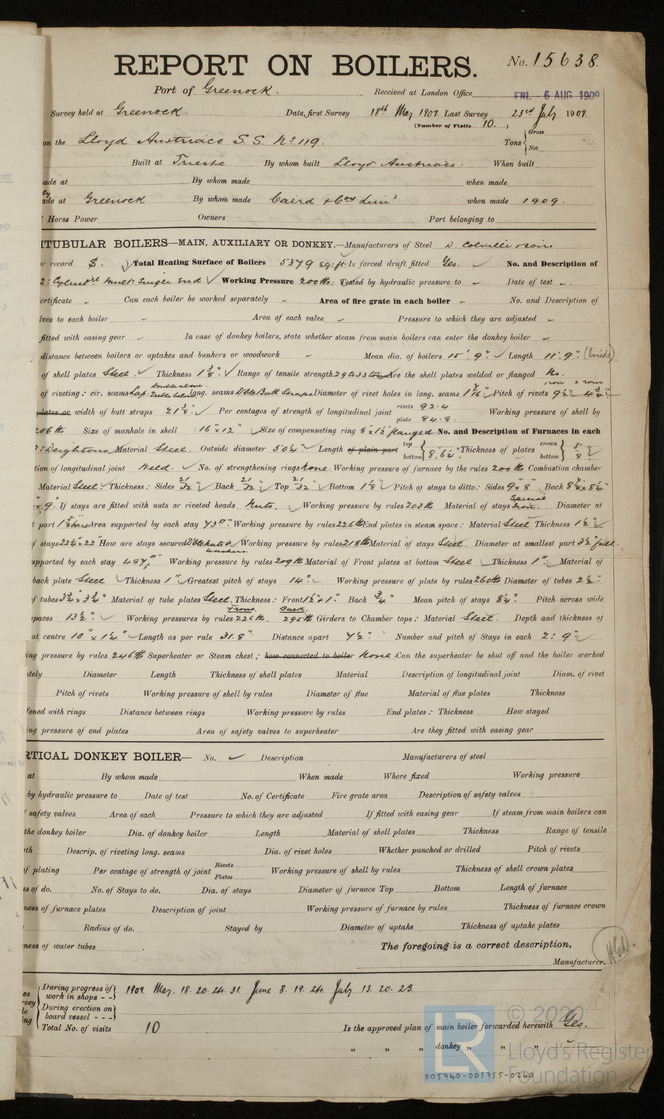 REPORT ON BOILERS. No. 15638.
Port of Greenock. Received at London Office FRI. 6 AUG 1909
Survey held at Greenock. Date, first Survey 18th May 1909 Last Survey 23rd July 1909
(Number of Visits 10.)
on the Lloyd Austriaco S.S. No 119. Tons { Gross Net
Built at Trieste By whom built Lloyd Austriaco. When built
ade at By whom made when made
de at Greenock By whom made Caird & Co Lim'd when made 1909.
l Horse Power Owners Port belonging to
ITUBULAR BOILERS—MAIN, AUXILIARY OR DONKEY.—Manufacturers of Steel D. Colville & Sons
r record S. Total Heating Surface of Boilers 5379 sq: ft Is forced draft fitted Yes. No. and Description of
2: Cylindl Mult Single End Working Pressure 200 lbs: Tested by hydraulic pressure to Date of test
ertificate Can each boiler be worked separately Area of fire grate in each boiler No. and Description of
lves to each boiler Area of each valve Pressure to which they are adjusted
fitted with easing gear In case of donkey boilers, state whether steam from main boilers can enter the donkey boiler
distance between boilers or uptakes and bunkers or woodwork Mean dia. of boilers 15' 9" Length 11' 9" (Inside)
of shell plates Steel. Thickness 1 1/8" Range of tensile strength 29 to 33 tons Are the shell plates welded or flanged No.
of riveting: cir. seams Lap long. seams Dble Butt Straps Diameter of rivet holes in long. seams Pitch of rivets
plates or width of butt straps 21 1/2" Per centages of strength of longitudinal joint rivets 92.4 plate 84.8. Working pressure of shell by
206 lbs Size of manhole in shell 16" x 12" Size of compensating ring flanged No. and Description of Furnaces in each
Deightons Material Steel. Outside diameter 50 1/4" Length of plain part top bottom Thickness of plates crown bottom
tion of longitudinal joint Weld. No. of strengthening rings None. Working pressure of furnace by the rules 200 lbs Combustion chamber
Material Steel Thickness: Sides 21/32" Back 21/32" Top 21/32" Bottom Pitch of stays to ditto: Sides 9" x 8" Back
x 9". If stays are fitted with nuts or riveted heads Nuts. Working pressure by rules 203 lbs Material of stays Special Iron. Diameter at
t part Area supported by each stay 73" Working pressure by rules 226 lbs End plates in steam space: Material Steel Thickness
f stays 22 1/2 x 22" How are stays secured Dble nuts & washers Working pressure by rules 218 lbs Material of stays Steel. Diameter at smallest part
upported by each stay 487" Working pressure by rules 209 lbs Material of Front plates at bottom Steel Thickness 1" Material of
back plate Steel Thickness 1" Greatest pitch of stays 14" Working pressure of plate by rules 260 lbs Diameter of tubes 2 1/2"
f tubes 3 3/4" x 3 3/4" Material of tube plates Steel. Thickness: Front Back 3/4" Mean pitch of stays Pitch across wide
spaces 13 1/2" Working pressures by rules Front 226 lbs. Back 291 lbs Girders to Chamber tops: Material Steel. Depth and thickness of
at centre 10" x 1 1/2" Length as per rule 31.8" Distance apart 7 1/2" Number and pitch of Stays in each 2: 9"
ing pressure by rules 246 lbs Superheater or Steam chest; how connected to boiler None Can the superheater be shut off and the boiler worked
tely Diameter Length Thickness of shell plates Material Description of longitudinal joint Diam. of rivet
Pitch of rivets Working pressure of shell by rules Diameter of flue Material of flue plates Thickness
ened with rings Distance between rings Working pressure by rules End plates: Thickness How stayed
ng pressure of end plates Area of safety valves to superheater Are they fitted with easing gear
RTICAL DONKEY BOILER— No. Description Manufacturers of steel
at By whom made When made Where fixed Working pressure
by hydraulic pressure to Date of test No. of Certificate Fire grate area Description of safety valves
safety valves Area of each Pressure to which they are adjusted If fitted with easing gear If steam from main boilers can
the donkey boiler Dia. of donkey boiler Length Material of shell plates Thickness Range of tensile
th Descrip. of riveting long. seams Dia. of rivet holes Whether punched or drilled Pitch of rivets
f plating Per centage of strength of joint Rivets Plates Working pressure of shell by rules Thickness of shell crown plates
s of do. No. of Stays to do. Dia. of stays Diameter of furnace Top Bottom Length of furnace
ness of furnace plates Description of joint Working pressure of furnace by rules Thickness of furnace crown
Radius of do. Stayed by Diameter of uptake Thickness of uptake plates
ness of water tubes The foregoing is a correct description,
Manufacturer.
During progress of work in shops - - 1909 May. 18. 20. 24. 31 June 8. 19. 24. July 13. 20. 23.
During erection on board vessel - - -
Total No. of visits 10 Is the approved plan of main boiler forwarded herewith Yes.
" " " donkey " " "
© 2020
LR Lloyd's Register
Foundation
005740-005755-0240